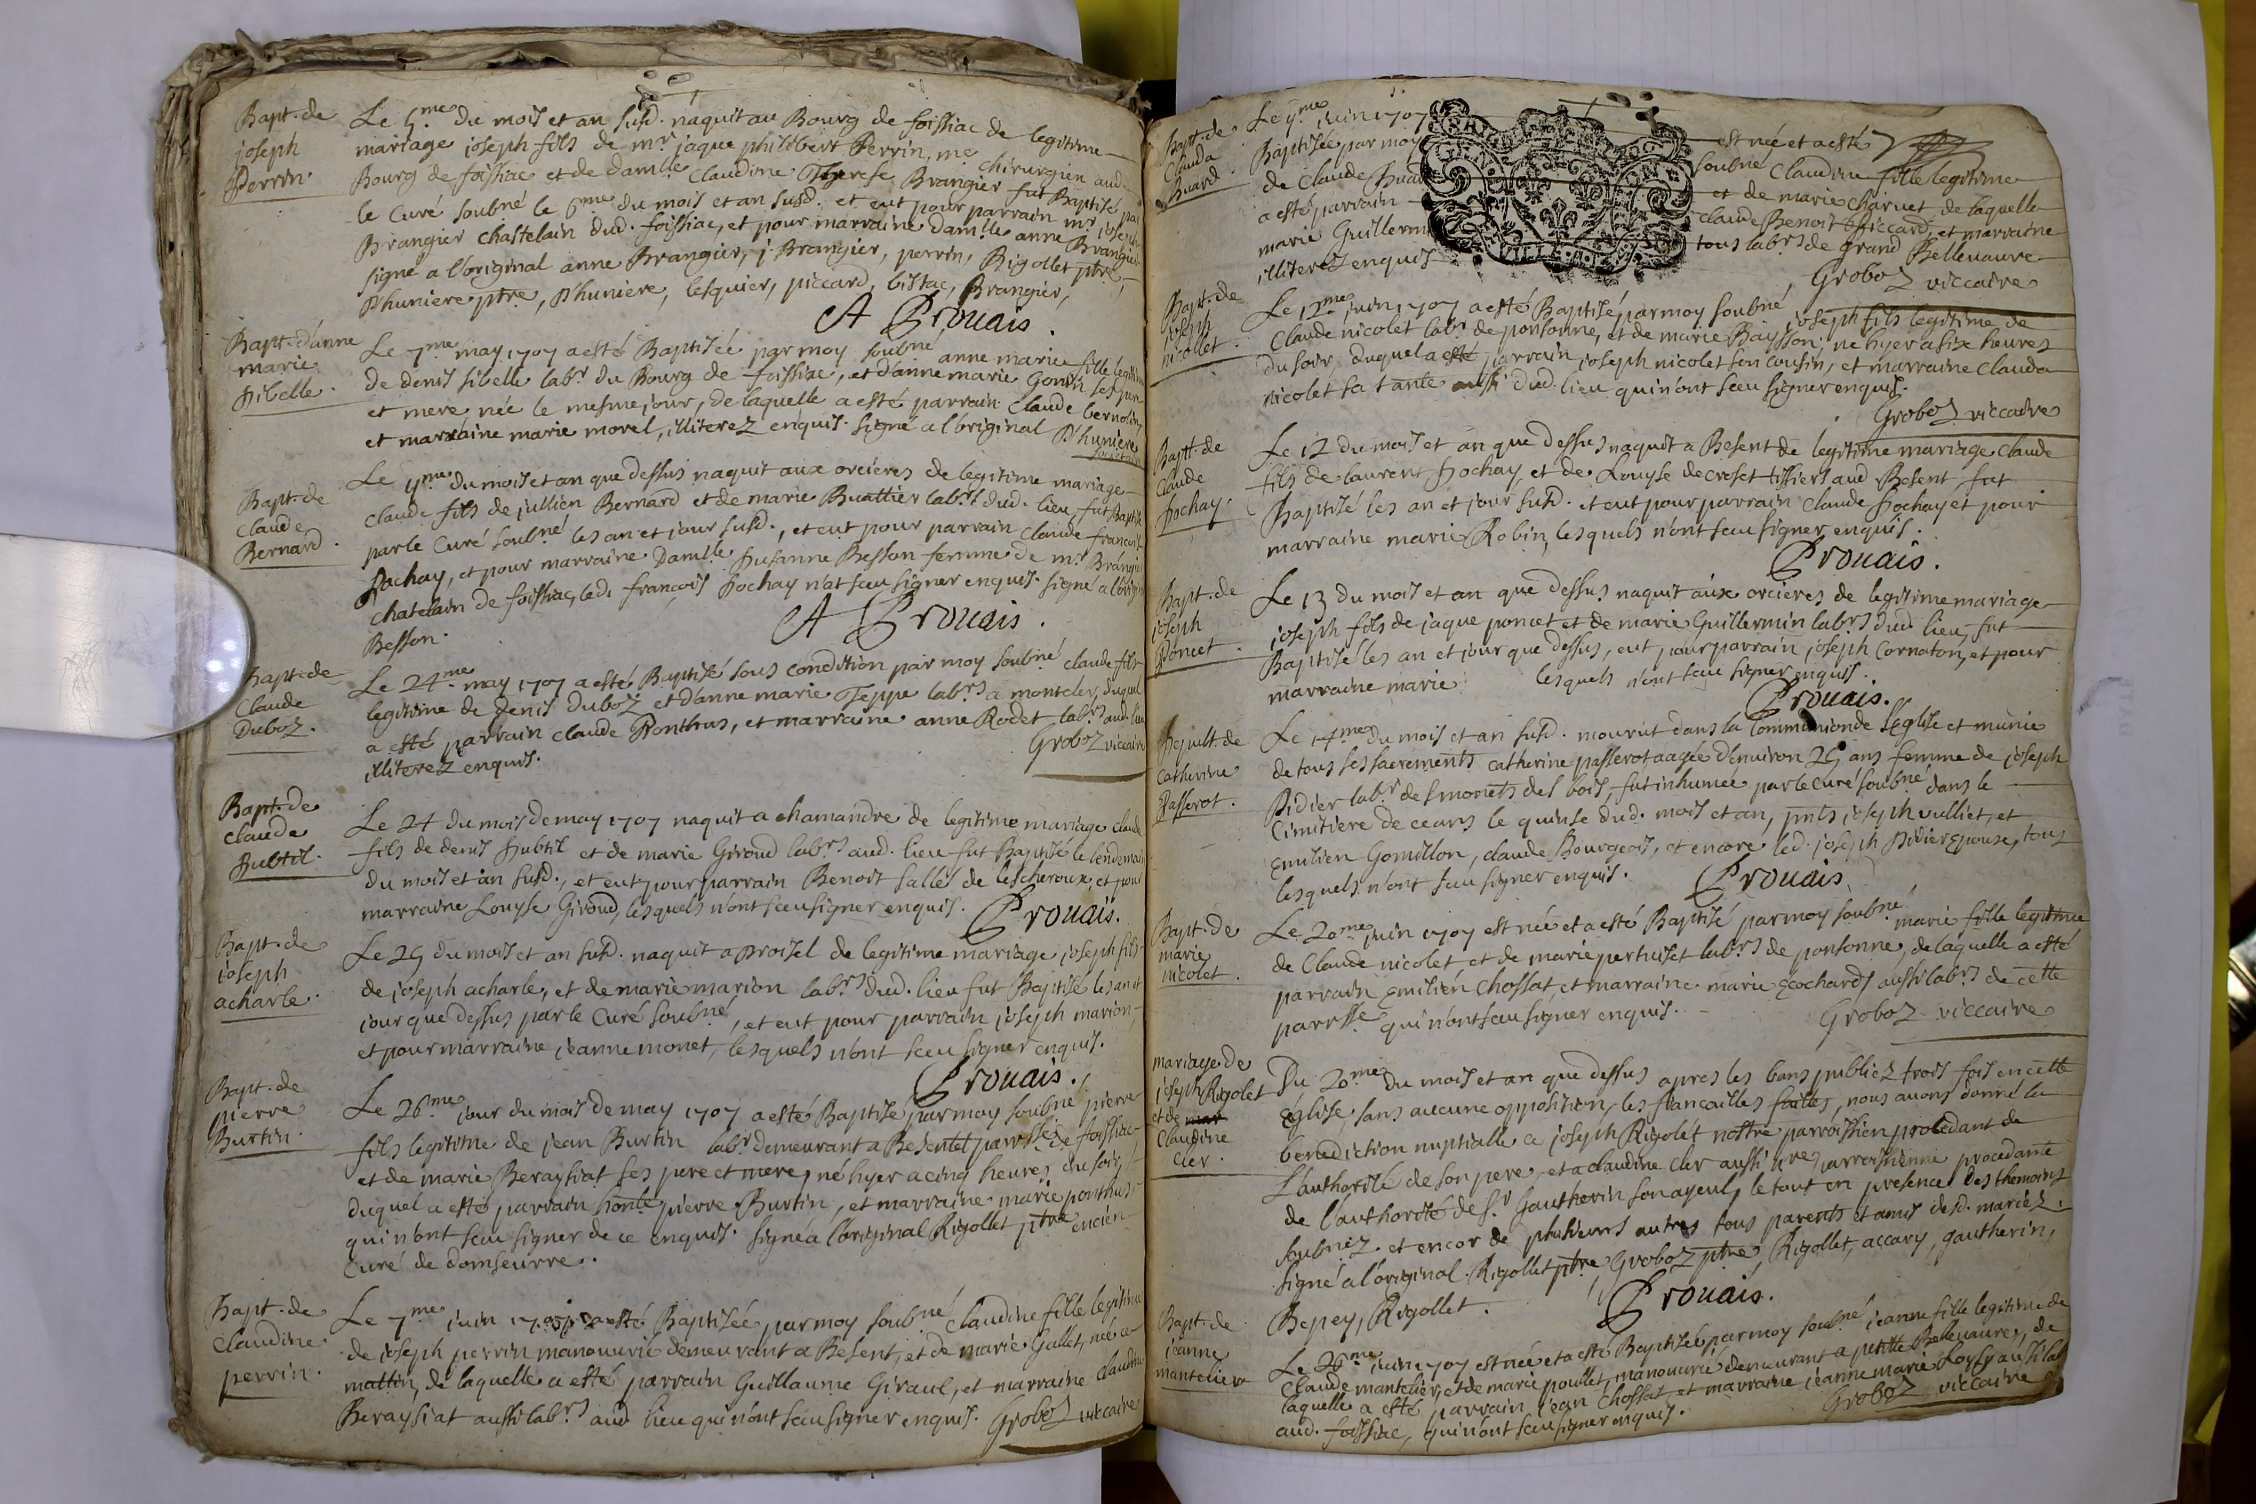 Bapt. de
joseph
Perrin.
Le 5.me du mois et an susd. naquit au Bourg de foissiac de legitime
mariage joseph fils de mr. jaque philibert Perrin, me chirurgien aud.
Bourg de foissiac et de damlle Claudine Therese Brangier fut Baptisé par
le Curé soubné le 6me du mois et an susd. et eut pour parrain mr. joseph
Brangier chastelain dud. foissiac, et pour marraine damlle anne Brangier
signé a l'original anne Brangier, j Brangier, perrin, Rigollet ptre,
Dhuniere ptre, Dhuniere, lesquier, piccard, bissac, Brangier,
A Prouais.
Bapt. d'anne
marie
sibelle.
Le 7.me may 1707 a esté Baptisée par moy soubné anne marie fille legitime
de denis sibelle labr. du Bourg de foissiac, et d'anne marie Gondin ses pere
et mere née le mesme jour, de laquelle a esté parrain Claude bernolin,
et marraine marie morel, illiterez enquis. signé a l'original Dhuniere
Bapt. de
Claude
Bernard.
Le du mois et an que dessus naquit aux orcieres de legitime mariage
Claude fils de jullien Bernard et de marie Buattier labrs. dud. lieu, fut Baptisé
par le Curé soubné les an et jour susd., et eut pour parrain Claude francois
Sochay, et pour marraine Damlle Susanne Besson femme de mr. Brangier
Chatelain de foissiac, led. françois Sochay n'at sceu signer enquis. signé a l'original
Besson.
A Prouais.
Bapt. de
Claude
Duboz.
Le 24.me may 1707 a esté Baptisé sous condition par moy soubné claude fils
legitime de denis duboz et d'anne marie Teppe labrs. a montcler, duquel
a esté parrain claude Ponthus, et marraine anne Rodet labrs. aud. lieu
illiterez enquis.
Groboz viccaire
Bapt. de
Claude
Subtil.
Le 24 du mois de may 1707 naquit a chamandre de legitime mariage claude
fils de denis Subtil et de marie Giroud labrs. aud. lieu fut Baptisé le lendemain
du mois et an susd., et eut pour parrain Benoit salle de lescheroux, et pour
marraine Louyse Giroud, lesquels n'ont sceu signer enquis.
Prouais.
Bapt. de
joseph
acharle.
Le 25 du mois et an susd. naquit a Proisel de legitime mariage joseph fils
de joseph acharle, et de marie marion labrs. dud. lieu fut Baptisé les an et
jour que dessus par le Curé soubné, et eut pour parrain joseph marion,
et pour marraine jeanne monet, lesquels n'ont sceu signer enquis.
Prouais.
Bapt. de
pierre
Burtin.
Le 26.me jour du mois de may 1707 a esté Baptisé par moy soubné pierre
fils legitime de jean Burtin labr. demeurant a Besentet parrsse de foissiac
et de marie Beraysiat ses pere et mere, né hyer a cinq heures du soir,
duquel a esté parrain honle pierre Burtin, et marraine marie ponthus
qui n'ont sceu signer de ce enquis. signé a l'original Rigollet ptre encien
Curé de domseurre.
Bapt. de
Claudine
perrin.
Le 7.me juin 1707 a esté Baptisée par moy soubné Claudine fille legitime
de joseph perrin manouurié demeurant a Besent, et de marie Gallet, née ce
mattin, de laquelle a esté parrain Guillaume Giraul, et marraine claudine
Beraysiat aussi labrs. aud. lieu qui n'ont sceu signer enquis. Groboz viccaire
Bapt. de
Clauda
Buard.
Le 9.me juin 1707 est née et a esté
Baptisée par moy soubné Claudine fille legitime
de Claude Buard et de marie Charuet de laquelle
a esté parrain claude Benoit piccard, et marraine
marie Guillermin tous labrs. de grand Bellevavre
illiterez enquis
Groboz viccaire
Bapt. de
joseph
nicollet.
Le 12.me juin 1707 a esté Baptisé par moy soubné joseph fils legitime de
Claude nicolet labr. de ponsonne, et de marie Baysson, né hyer a six heures
du soir, duquel a esté parrain joseph nicolet son cousin, et marraine Clauda
nicolet sa tante aussi dud. lieu qui n'ont sceu signer enquis.
Groboz viccaire
Bapt. de
Claude
Sochay.
Le 12 du mois et an que dessus naquit a Besent de legitime mariage Claude
fils de laurent Sochay, et de Louyse decroset tissiers aud. Besent, fut
Baptisé les an et jour susd. et eut pour parrain Claude Sochay et pour
marraine marie Robin, lesquels n'ont sceu signer enquis.
Prouais.
Bapt. de
joseph
Poncet.
Le 13 du mois et an que dessus naquit aux orcieres de legitime mariage
joseph fils de jaque poncet et de marie Guillermin labrs. dud. lieu, fut
Baptisé les an et jour que dessus, eut pour parrain joseph Cornaton, et pour
marraine marie lesquels n'ont sceu signer enquis.
Prouais.
Sepult. de
Catherine
Passerot.
Le 14.me du mois et an susd. mourut dans la Communion de l'Eglise et munie
de tous ses sacrements catherine passerot aagée d'enuiron 25 ans femme de joseph
Pidier labr. des monets des bois, fut inhumée par le Curé soubné dans le
Cimitiere de ceans le quinse dud. mois et an, pnts joseph vulliet, et
Emilien Gomillon, claude Bourgeois, et encore led. joseph Pidier Epouse, tous
lesquels n'ont sceu signer enquis.
Prouais
Bapt. de
marie
nicolet.
Le 20.me juin 1707 est née et a esté Baptisé par moy soubné marie fille legitime
de Claude nicolet et de marie pertuiset labrs. de ponsonne, de laquelle a esté
parrain Emilien Chossat, et marraine marie Ecochard, aussi labrs. de cette
parrsse qui n'ont sceu signer enquis.
Groboz viccaire
mariage de
joseph Rigolet
et de mar
Claudine
Cler.
Du 20.me du mois et an que dessus apres les bans publiez trois fois en cette
Eglise, sans aucune opposition, les fiancailles faites, nous avons donné la
benediction nuptialle a joseph Rigolet nostre parroissien procedant de
L'authorité de son pere, et a claudine Cler aussi nre parroissienne procedante
de l'authorité de sr. Gautherin son ayeul, le tout en presence des themoins
soubnez et encor de plusieurs autres tous parents et amis desd. mariez.
signé a l'original. Rigollet ptre, Groboz ptre, Rigollet, accary, gautherin,
Bepey, Rigollet.
Prouais.
Bapt. de
jeanne
mantelier
Le 26.me juin 1707 est née et a esté Baptisée par moy soubné jeanne fille legitime de
Claude mantelier, et de marie poullet, manouurié demeurant a petitte Bellevavre, de
laquelle a esté parrain jean Chossat et marraine jeanne marie Loysy aussi lab
aud. foissiac, qui n'ont sceu signer enquis.
Groboz viccaire